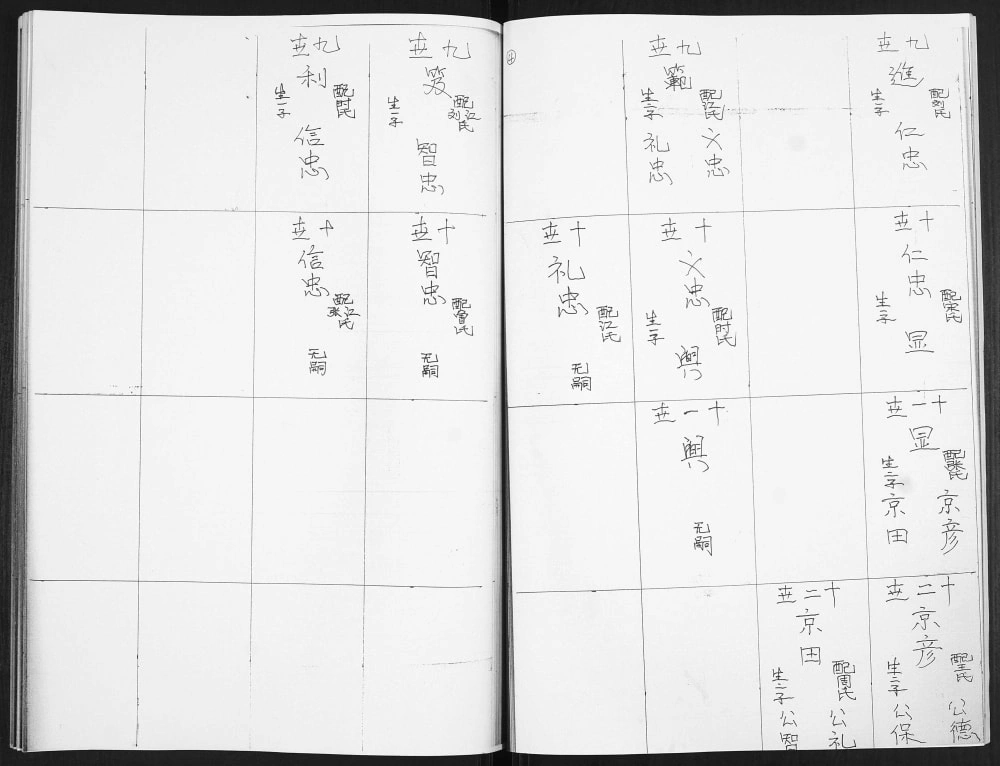 九世
進
配刘氏
生一子
仁忠
九世
範
配江氏
生二子
文忠
礼忠
十世
仁忠
配宋氏
生一子
显
十世
文忠
配时氏
生一子
興
十世
礼忠
配江氏
无嗣
十一世
显
生二子
京彦
京田
十一世
興
无嗣
十二世
京彦
配王氏
生二子
公德
公保
十二世
京田
配周氏
生二子
公礼
公智
九世
笈
配江刘氏
生一子
智忠
九世
利
配时氏
生一子
信忠
十世
智忠
配曾氏
无嗣
十世
信忠
配江张氏
无嗣